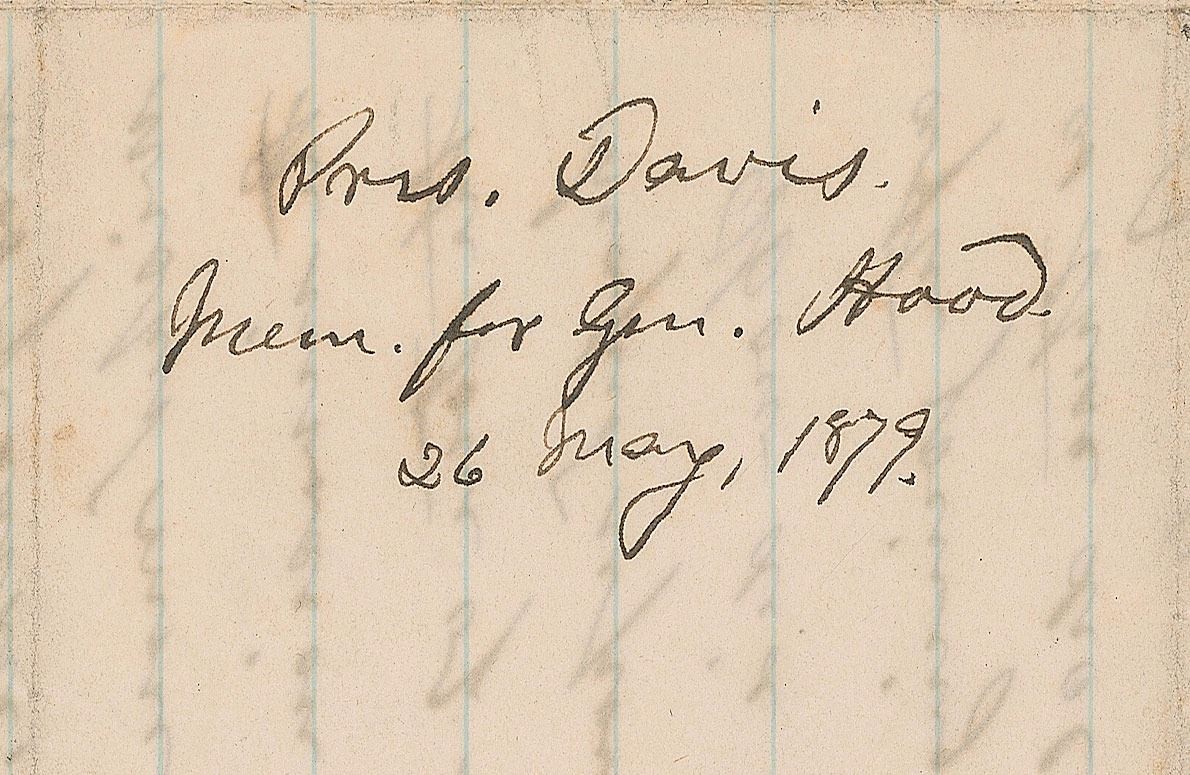 Pres. Davis.
Mem. for Gen. Hood.
26 May, 1879.